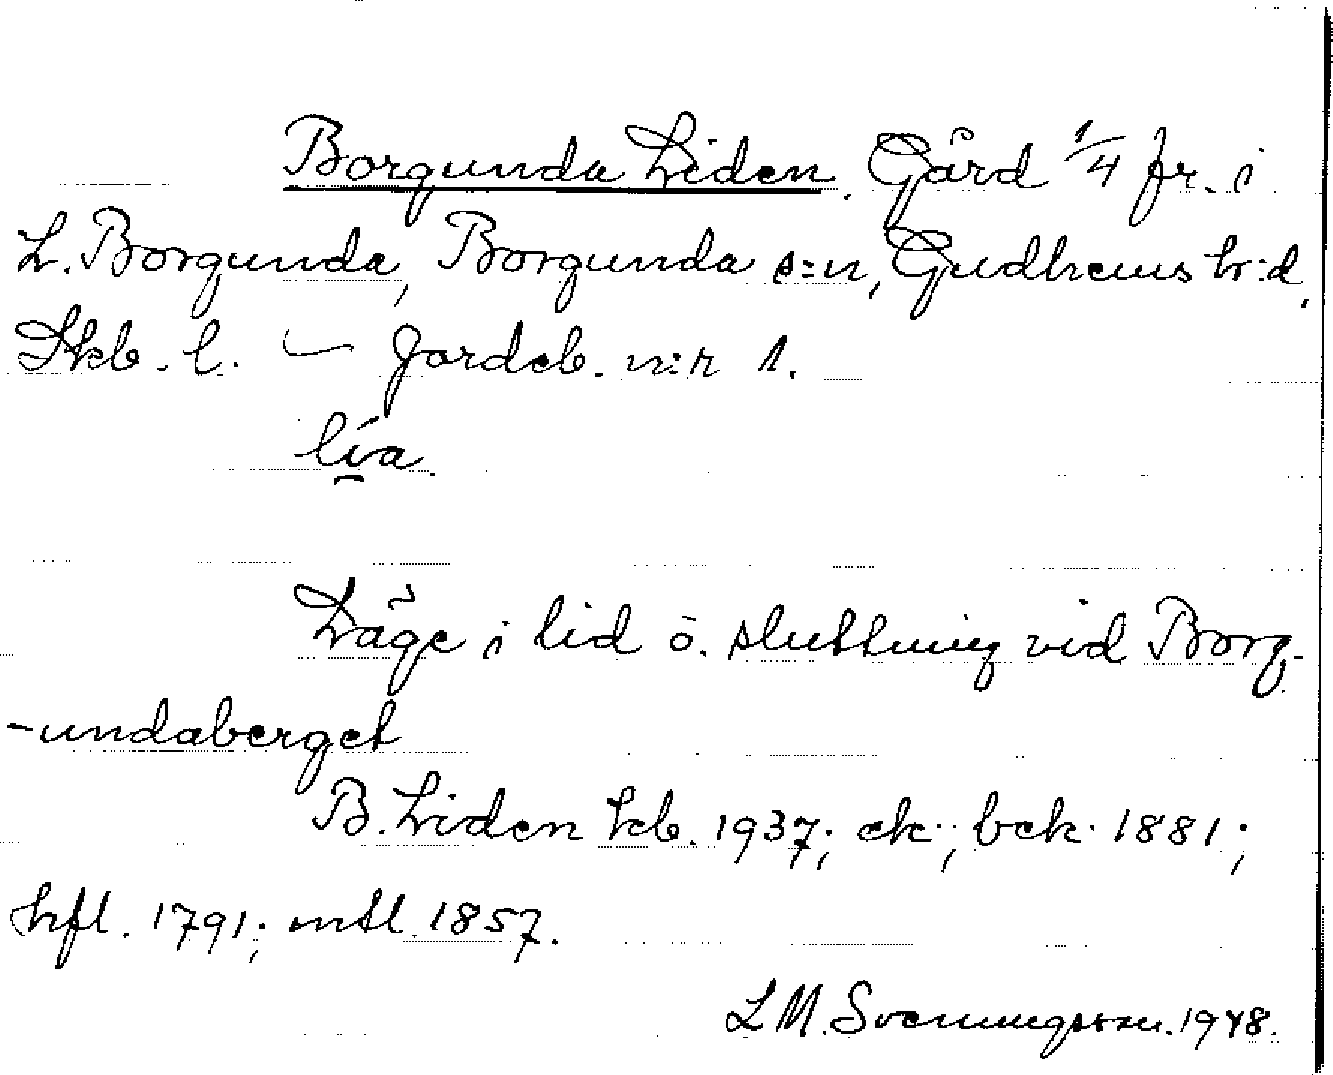 Borgunda Liden. Gård 1/4 fr. i
L. Borgunda, Borgunda s:n, Gudhems hr:d,
Skb. l. — Jordeb. n:r 1.
lía.
Läge i lid o. sluttning vid Borg-
-undaberget
B. Liden kb. 1937; ek.; bek. 1881;
hfl. 1791; mtl 1857.
L M. Svenungsson. 1948.